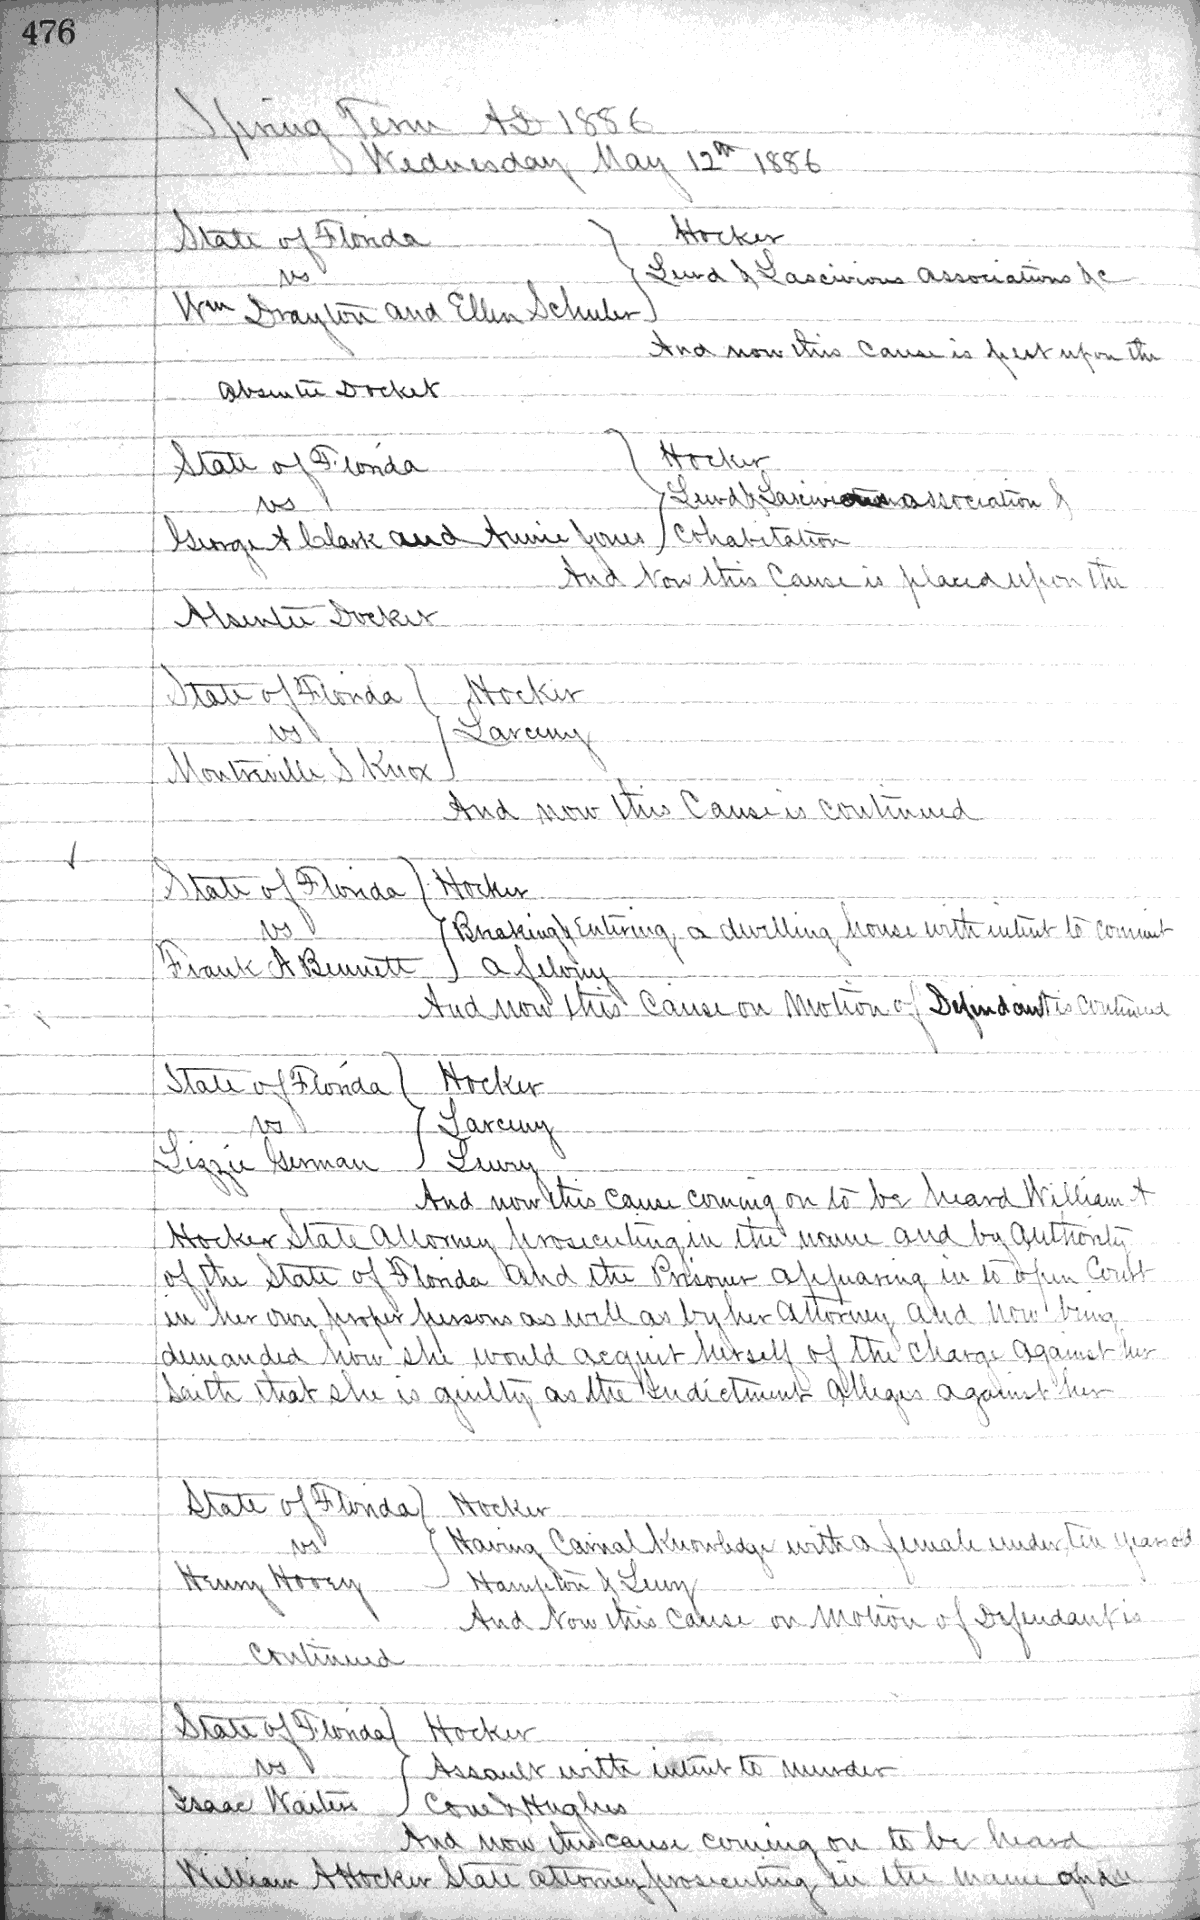 476
Spring Term AD 1886
Wednesday May 12th 1886
State of Florida Hocker
vs Lewd & Lascivious associations &c
Wm Drayton and Ellen Schuler
And now this cause is put upon the
Absentee Docket
State of Florida Hocker
vs Lewd & Lascivious association &
George A Clark and Annie Jones Cohabitation
And Now this Cause is placed upon the
Absentee Docket
State of Florida Hocker
vs Larceny
Montraville S Knox
And now this Cause is continued
State of Florida Hocker
vs Breaking & Entering a dwelling house with intent to commit
Frank A Bennett a felony
And now this Cause on Motion of Defendant is continued
State of Florida Hocker
vs Larceny
Lizzie German Levey
And now this cause coming on to be heard William A
Hocker State Attorney prosecuting in the name and by Authority
of the State of Florida and the Prisoner appearing in to open Court
in her own proper persons as well as by her Attorney and now being
demanded how she would acquit herself of the charge against her
Saith that she is guilty as the Indictment Alleges against her
State of Florida Hocker
vs Having Carnal Knowledge with a female under ten years old
Henry Hovey Hampton & Levy
And Now this Cause on Motion of Defendant is
continued
State of Florida Hocker
vs Assault with intent to murder
Isaac Waiters Cone & Hughes
And now this cause coming on to be heard
William A Hocker State attorney prosecuting in the name and